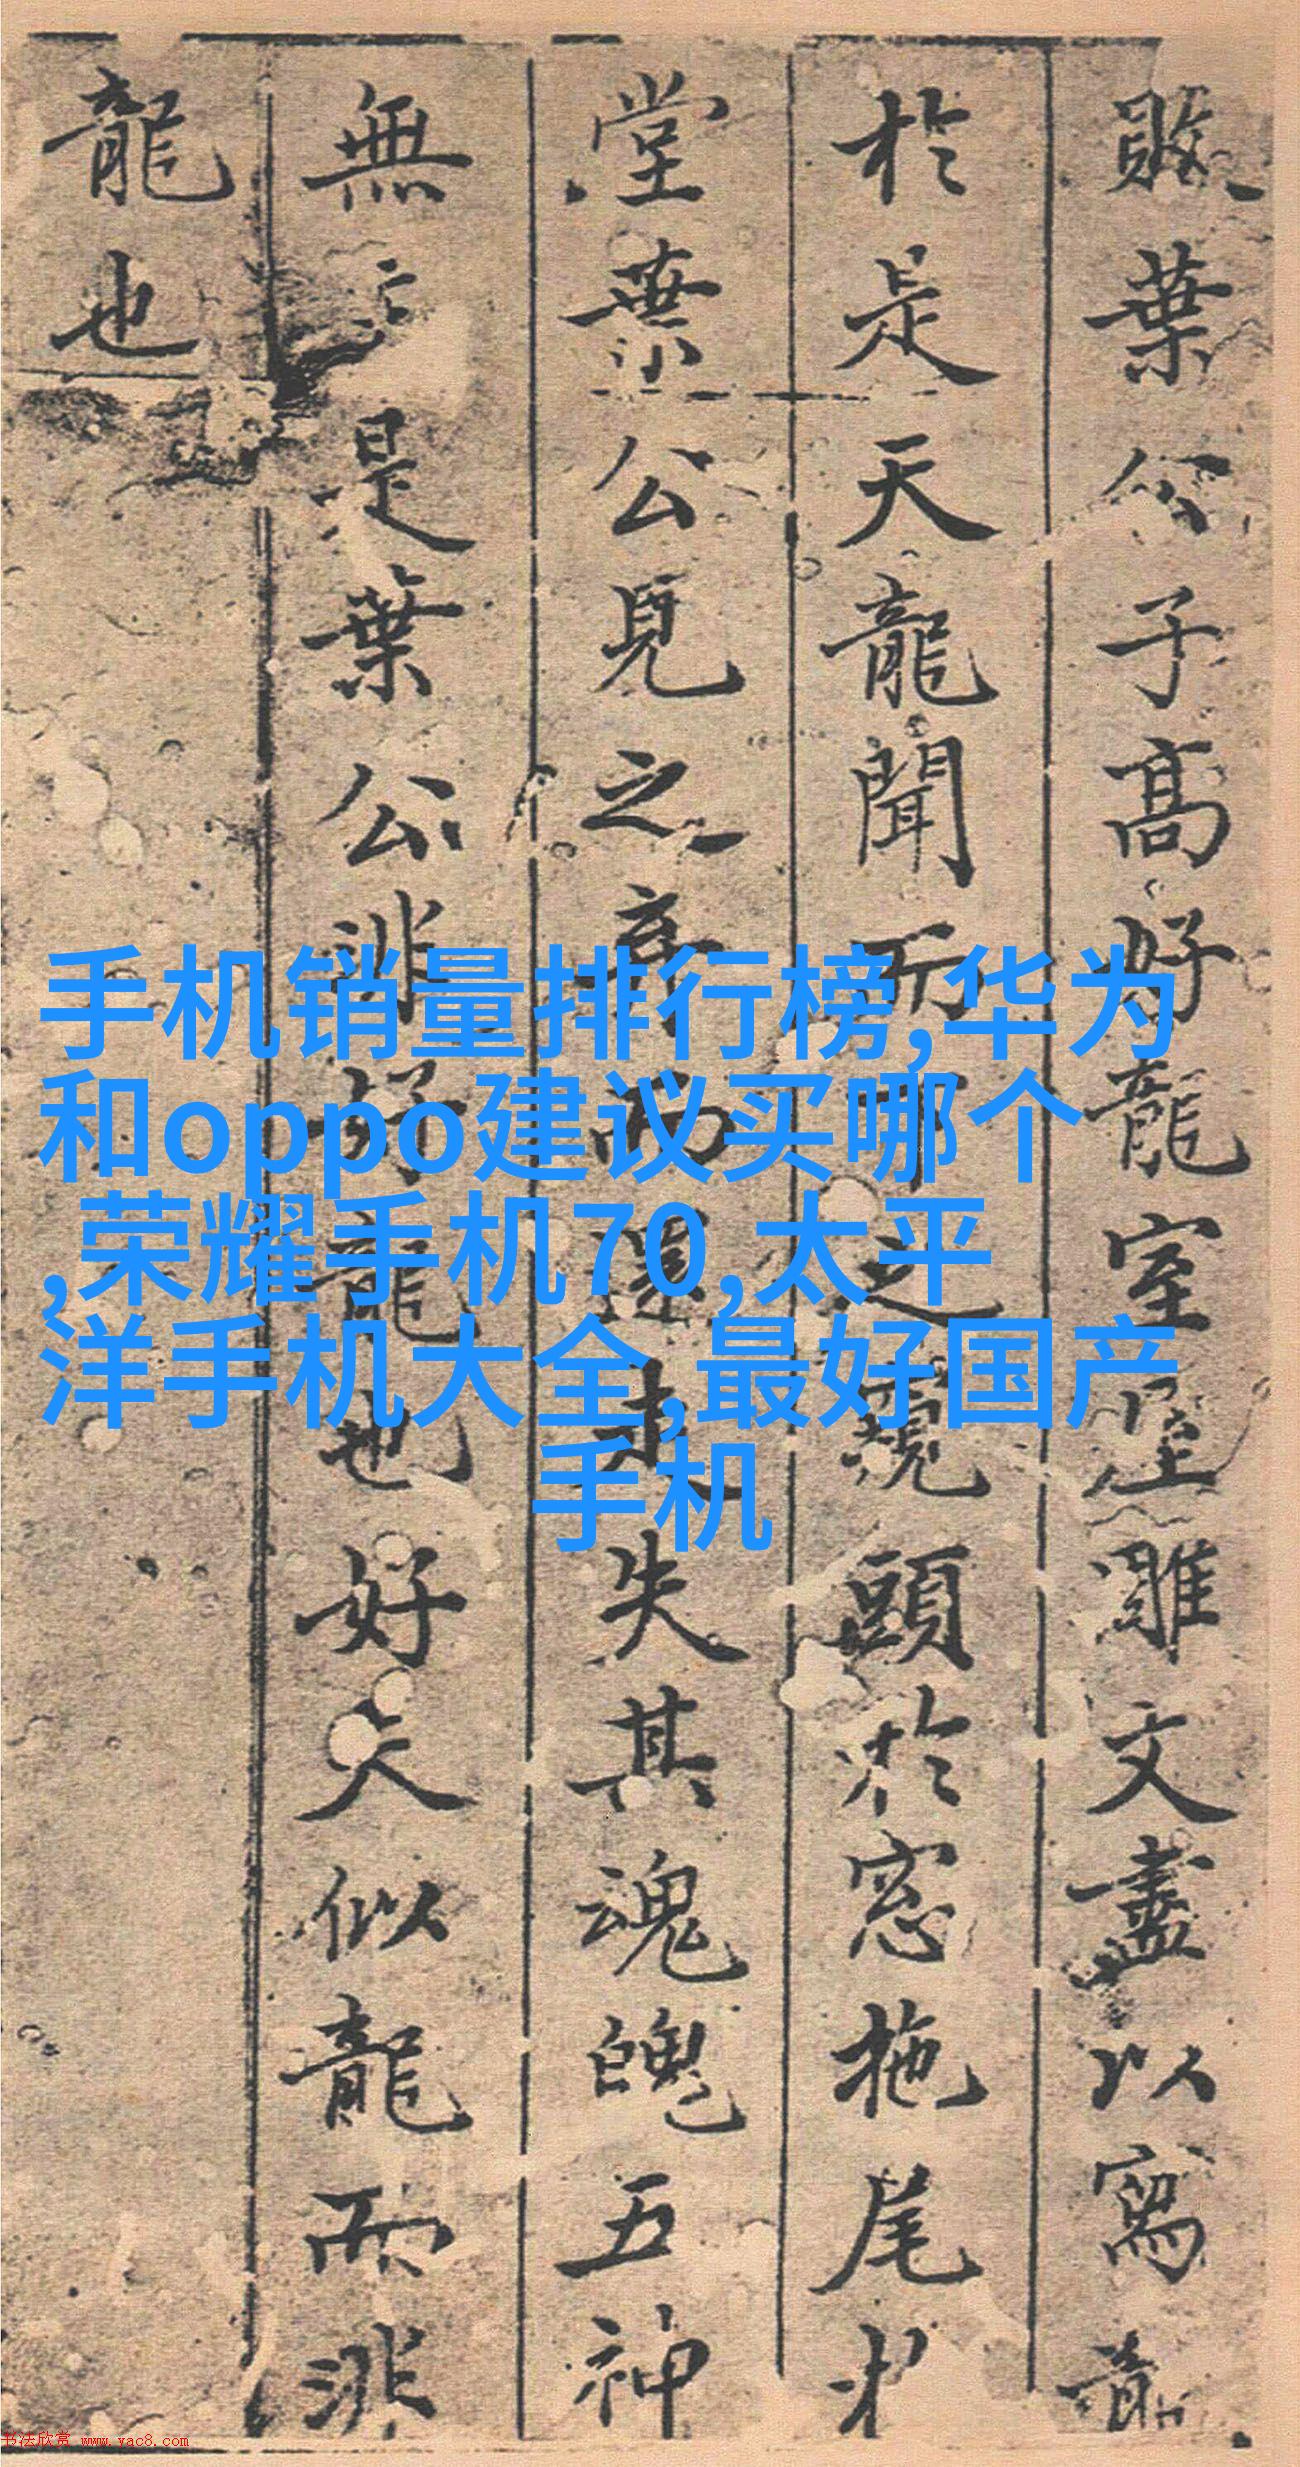 葉公子高好龍室雕文盡以寫龍
於是天龍聞而下之窺頭於窓拖尾於
堂葉公見之弃而還走失其魂魄五神
無主是葉公非好龍也好夫似龍而非
龍也
手机销量排行榜,华为
和oppo建议买哪个
,荣耀手机70,太平
洋手机大全,最好国产
手机
书法欣赏 www.yac8.com